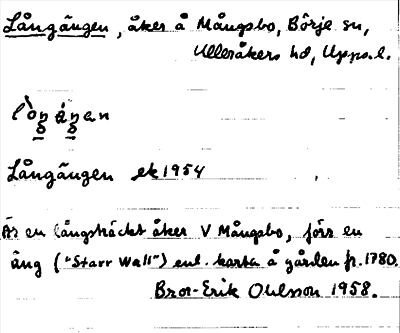 Långängen, åker å Mångsbo, Börje sn,
Ulleråkers hd, Upps. l.
Långängen ek 1954
Är en långsträckt åker V Mångsbo, förr en
äng ("Starr Wall") enl. karta å gården fr. 1780.
Bror-Erik Ohlsson 1958.